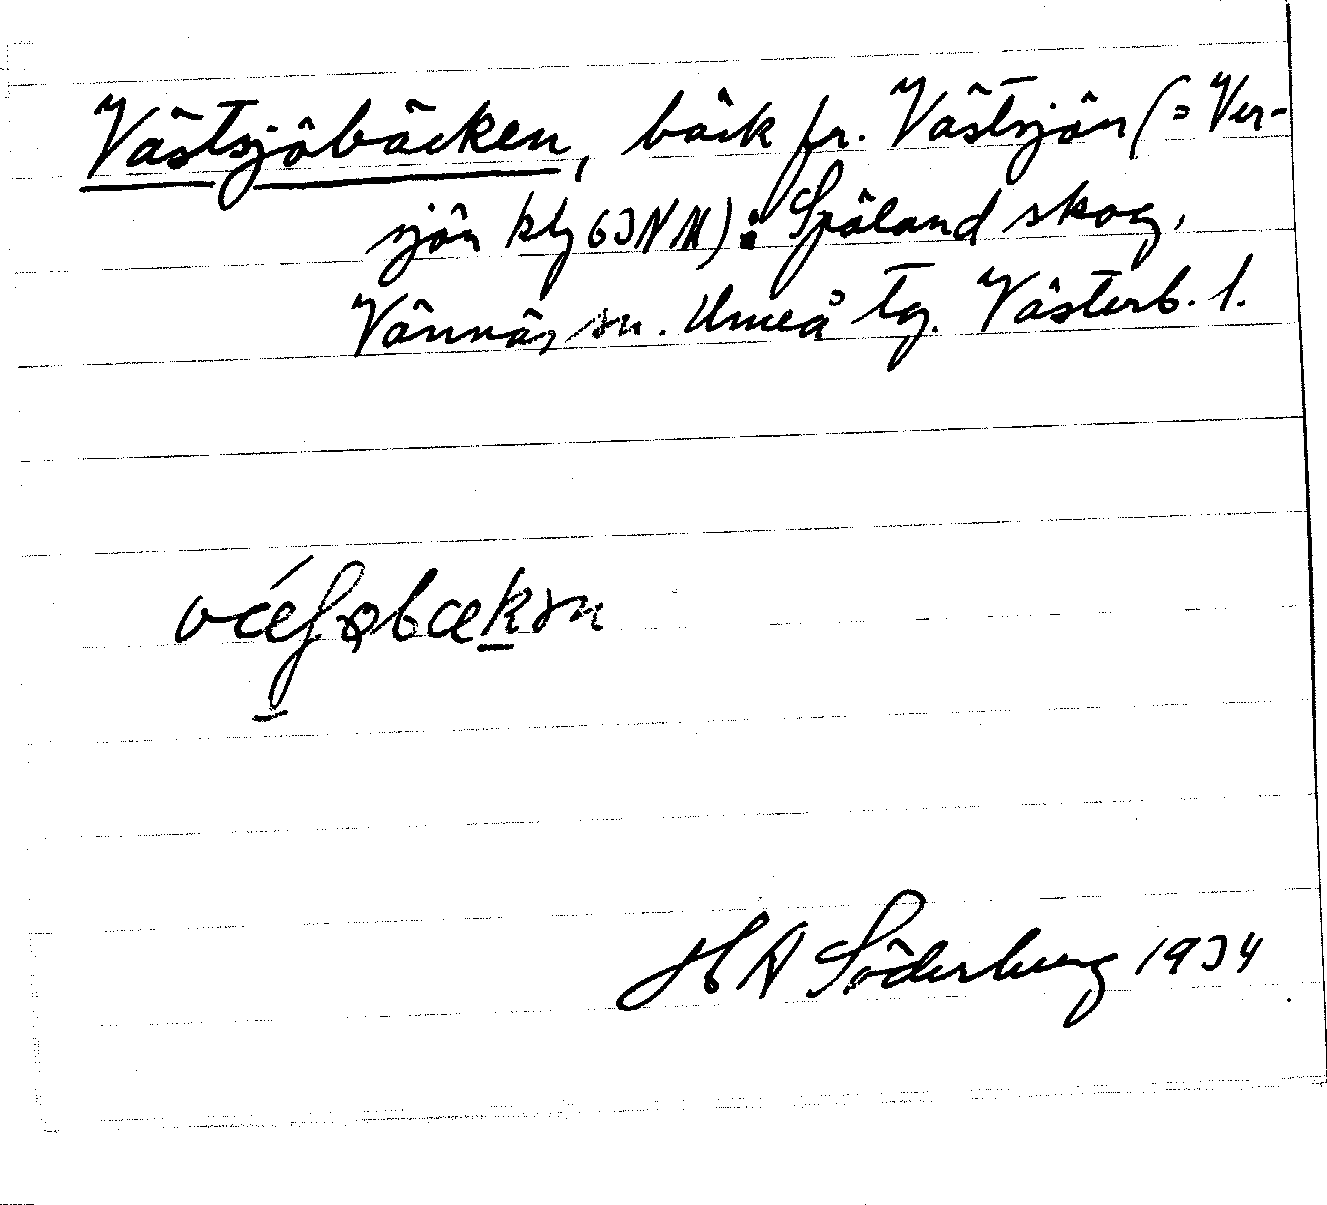 Västsjöbäcken, bäck fr. Västsjön (= Ver-
sjön kbl 63 NM): Spöland skog,
Vännäs sn. Umeå tg. Västerb. l.
vǽʃøbækən
H A Söderberg 1934